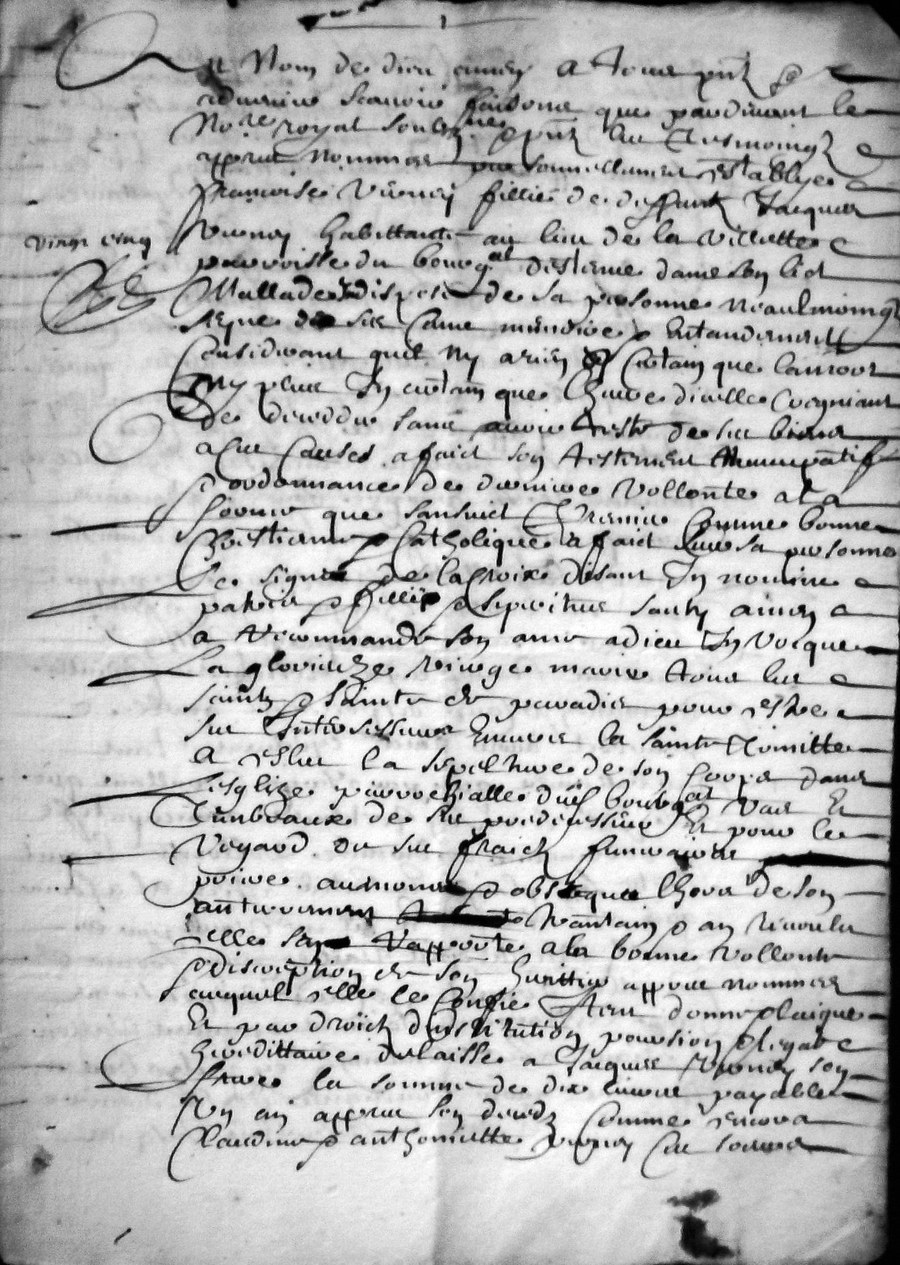 Au Nom de dieu amen A Tous pntz &
advenire scavoir faisons que pardevant le
No.re royal soubzne & pntz les Tesmoings
appres nommes personnellement establye
francoise Verney fillie de deffunt Jacques
Verney habittante au lieu de la Villette
parroisse du bourg dans son lict
vingt cinq
Mallade disposee de sa personne neaulmoings
saine de ses sans memoire & Entandement
Considerant quil ny a rien sy Certain que la mort
ny plus Incertain que Lheure dicelle Craigniant
de decedder sans avoir teste de ses biens
a ces Causes a faict son testement Nuncupatif
& ordonnance de derniere Vollonte a la
forme que sansuict & premier Comme bonne
Chrestienne & Catholique a faict sur sa personne
le signe de la Croix disant In nomine
patris & fillii & spiritus santy amen
a recommande son ame a dieu Invocque
La glorieuze vierge marie tous les
saintz & Sainte de paradis pour estre
ses Intersesseurs Envers la sainte trinitte
A eslue la sepulture de son Corps dans
lesglize parrochialle dud bourg Vas Et
Tumbeaux de ses predecesseurs Et pour le
Regard de ses fraictz funeraires
priere aumones & obseques Lhors de son
anterrement & an revolu
elle sen rapporte a la bonne vollonte
& discreption de son herittier appres nommes
auquel elle le Confie Item donne laigue
Et par droict dinstitution & legat
hereditaire delaisse a Jacques Verney son
frere la somme de dix livres payable
Un an appres son deces Comme encora
Claudine & anthoinette Verney ses soeurs